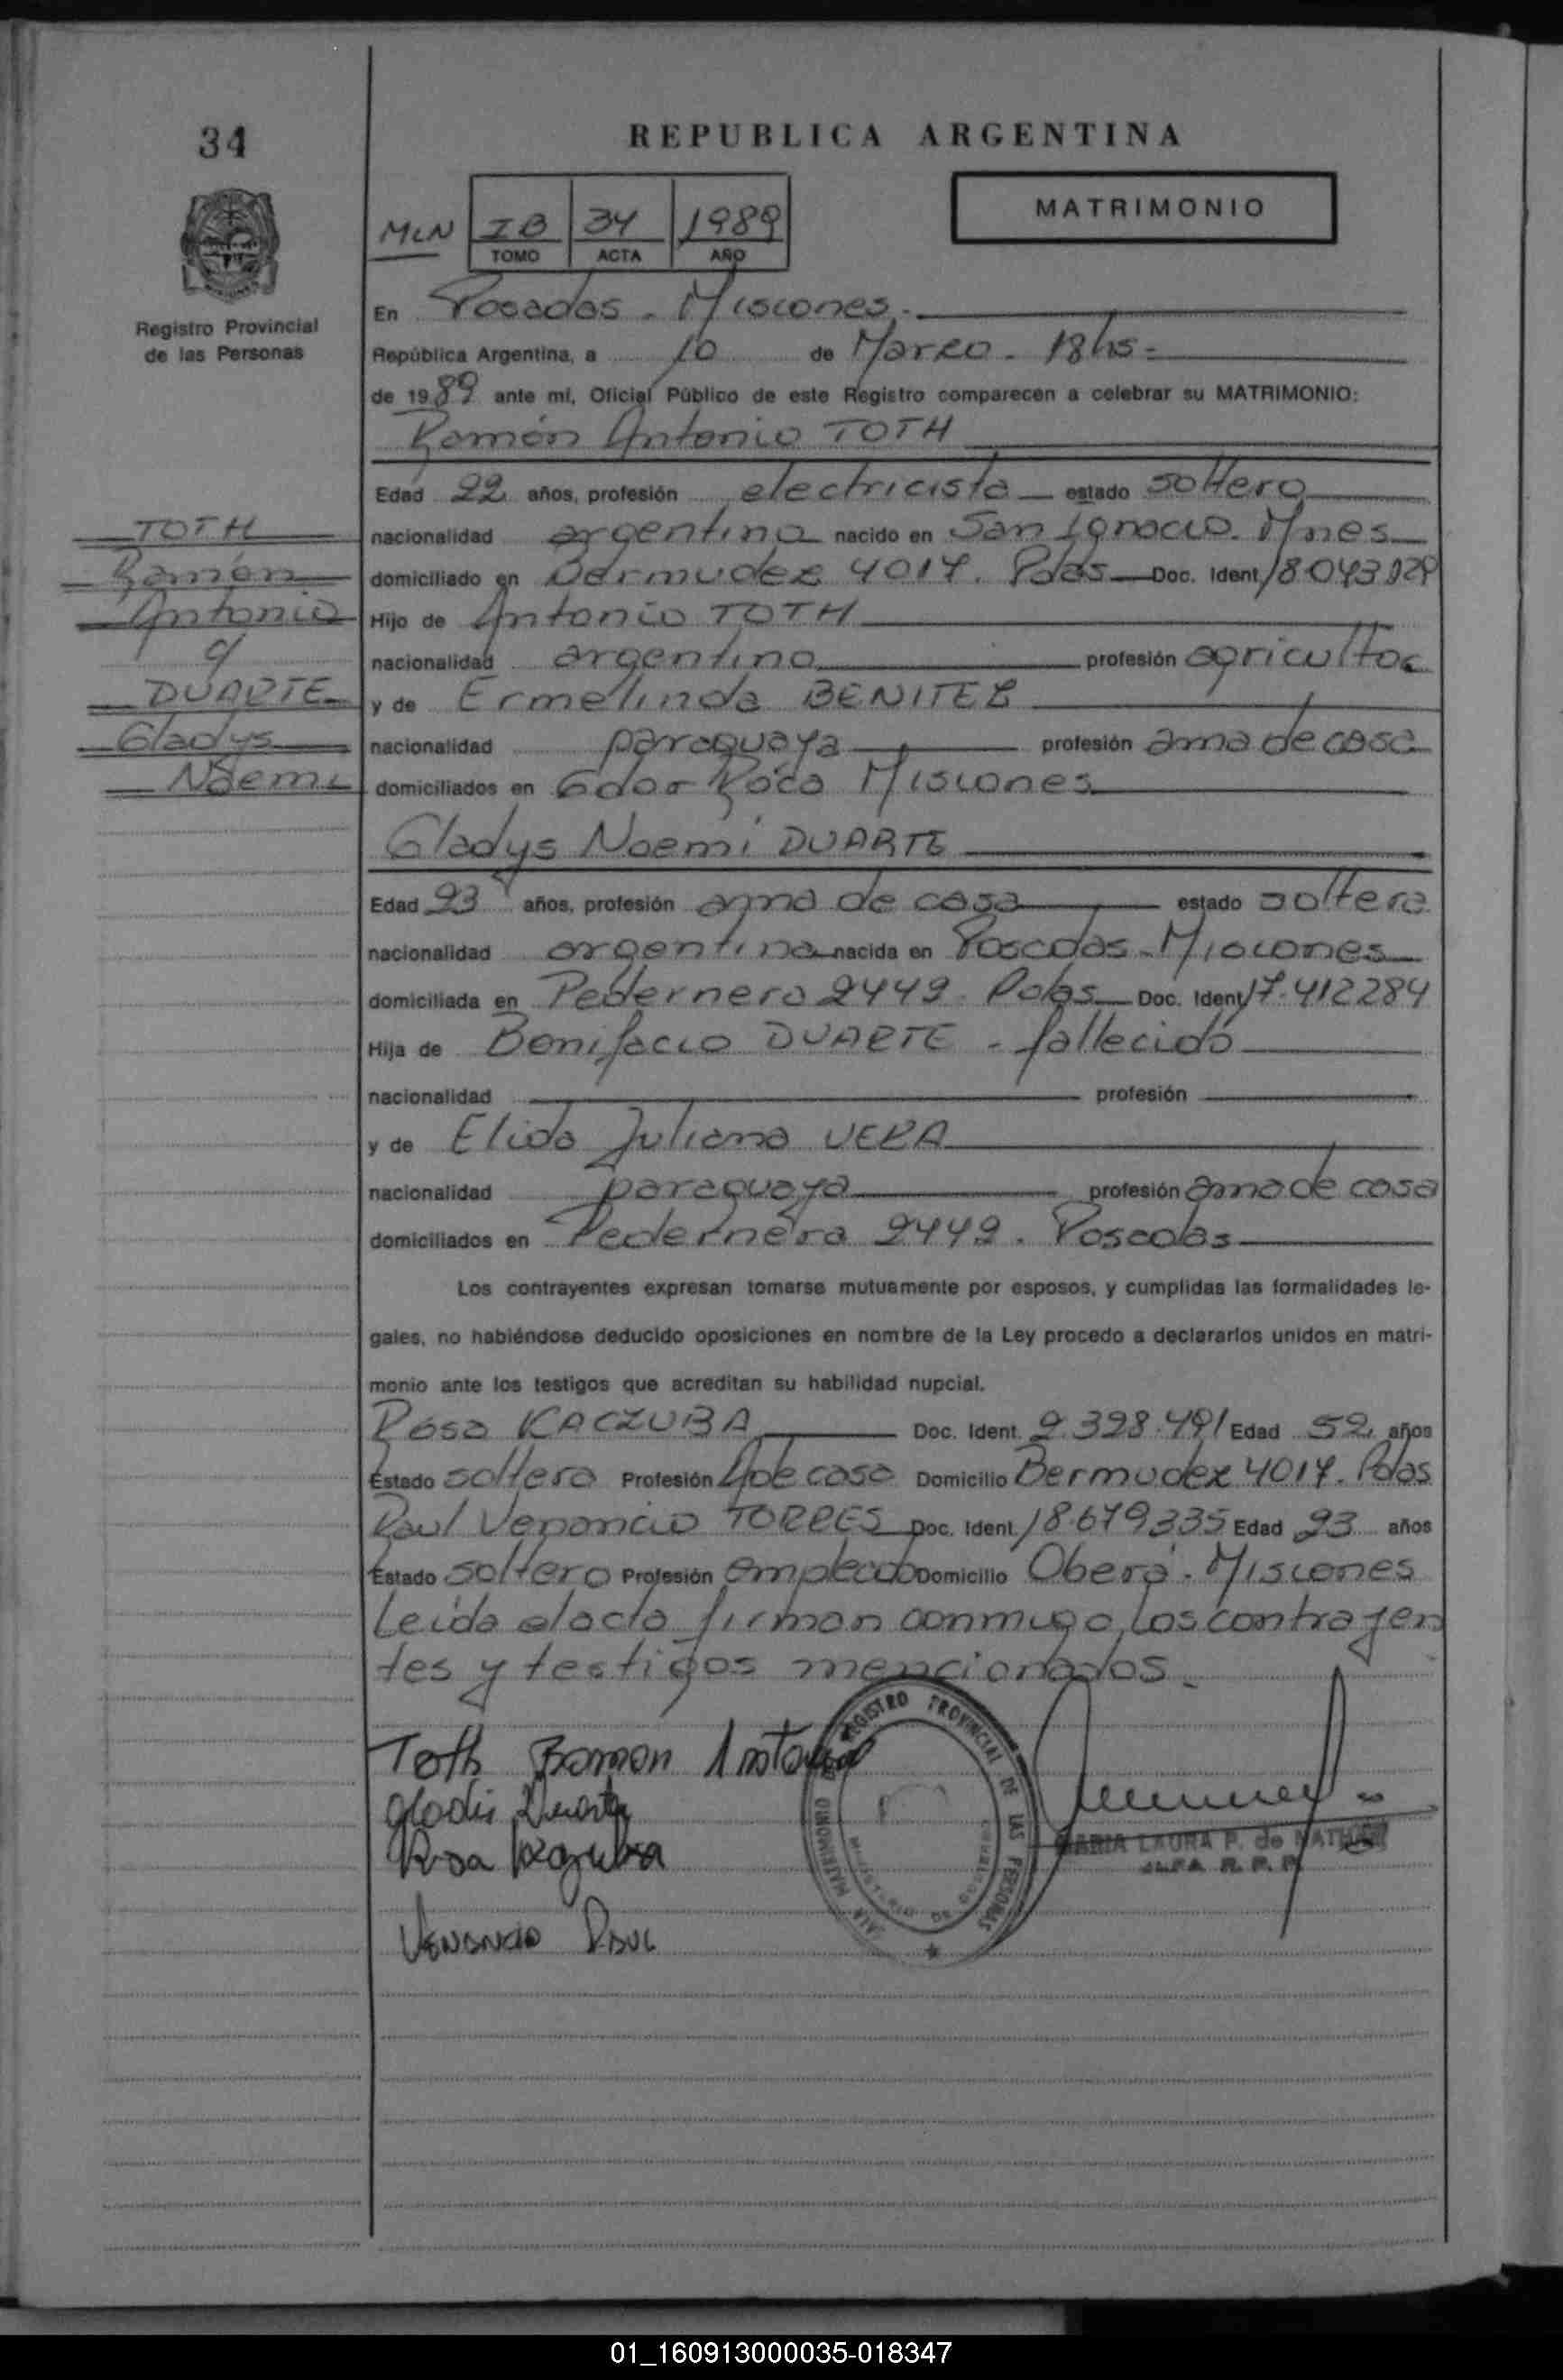 34
REPUBLICA ARGENTINA
MATRIMONIO
MLN IB 34 1989
TOMO ACTA AÑO
Registro Provincial
de las Personas
En Posadas - Misiones.-
República Argentina, a 10 de Marzo - 18hs-
de 1989 ante mí, Oficial Público de este Registro comparecen a celebrar su MATRIMONIO:
Ramón Antonio TOTH
Edad 22 años, profesión electricista estado soltero
TOTH
Ramón
Antonio
c/
DUARTE
Gladys
Noemi
nacionalidad argentina nacido en San Ignacio. Mnes
domiciliado en Bermudez 4017. Pdas Doc. Ident. 18.043.029
Hijo de Antonio TOTH
nacionalidad argentina profesión agricultor
y de Ermelinda BENITEZ
nacionalidad paraguaya profesión ama de casa
domiciliados en Gdor Roca Misiones
Gladys Noemi DUARTE
Edad 23 años, profesión ama de casa estado soltera
nacionalidad argentina nacida en Posadas - Misiones
domiciliada en Pedernera 2449. Pdas Doc. Ident. 17.412284
Hija de Bonifacio DUARTE - fallecido
nacionalidad profesión
y de Elida Juliana VERA
nacionalidad paraguaya profesión ama de casa
domiciliados en Pedernera 2449. Posadas
Los contrayentes expresan tomarse mutuamente por esposos, y cumplidas las formalidades le-
gales, no habiéndose deducido oposiciones en nombre de la Ley procedo a declararlos unidos en matri-
monio ante los testigos que acreditan su habilidad nupcial.
Rosa KACZUBA Doc. Ident. 2.398.491 Edad 52 años
Estado soltera Profesión A de casa Domicilio Bermudez 4017. Pdas
Raul Venancio TORRES Doc. Ident. 18.679335 Edad 23 años
Estado soltero Profesión empleado Domicilio Oberá. Misiones
Leida el acta firman conmigo, los contrayen
tes y testigos mencionados.
Toth Ramon Antonio
Gladis Duarte
Rosa
Venancio Raul
REGISTRO PROVINCIAL DE LAS PERSONAS
MINISTERIO DE GOBIERNO
MARIA LAURA P. de
R. P. P.
01_160913000035-018347